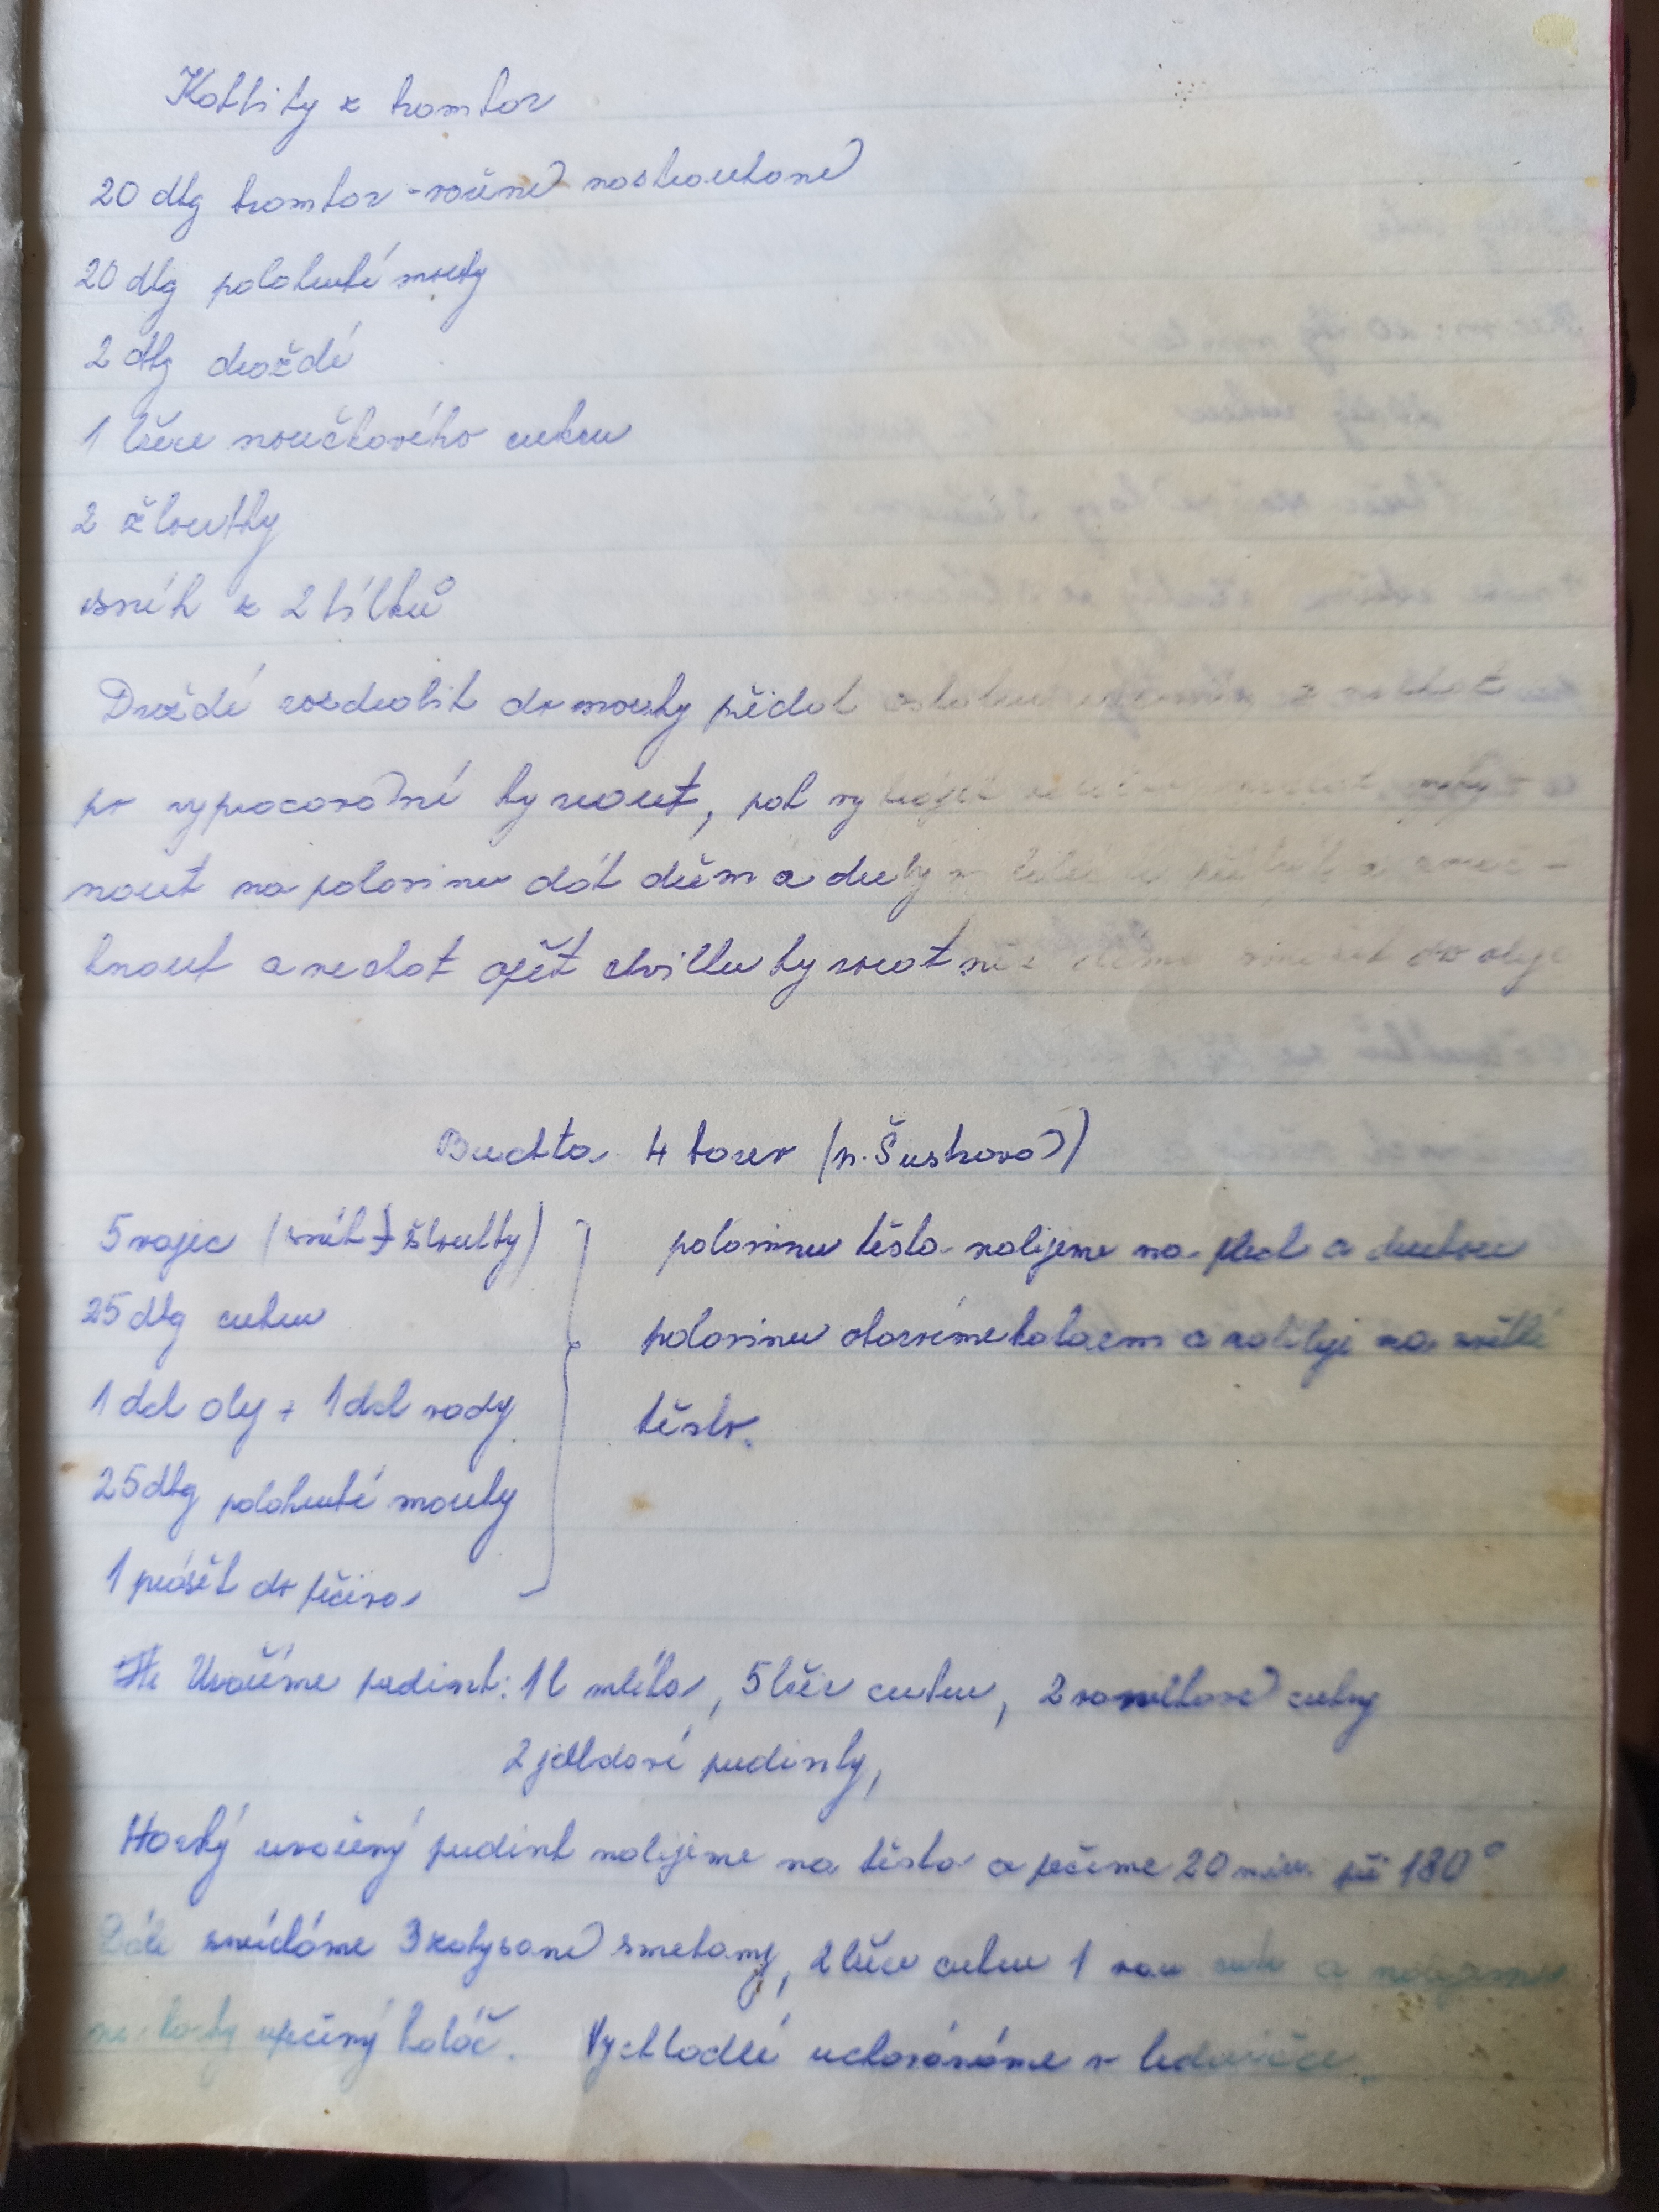 Koblihy z brambor
20 dkg brambor - vařené nastrouhané
20 dkg polohrubé mouky
2 dkg droždí
1 lžíce moučkového cukru
2 žloutky
sníh z 2 bílků
Droždí rozdrobit do mouky přidat ostatní a nechat
po vypracování kynout, pak vykrájet
nout na polovinu dát džem a druhým přikrýt a
knout a nechat opět chvilku kynout než dáme smažit do oleje
Buchta 4 barev (p. Šustrová)
5 vajec (sníh + žloutky)
25 dkg cukru
1 dcl olej + 1 dcl vody
25 dkg polohrubé mouky
1 prášek do pečiva
polovinu těsta nalijeme na plech a druhou
polovinu obarvíme kakaem a naliji na světlé
těsto.
Uvaříme pudink: 1 l mléka, 5 lžic cukru, 2 vanilkové cukry
2 jahodové pudinky,
Horký uvařený pudink nalijeme na těsto a pečeme 20 min. při 180°
Dále smícháme 3 zakysané smetany, 2 lžíce cukru 1 van cukr a nalijeme
na horký upečený koláč. Vychladlé uchováváme v ledničce.